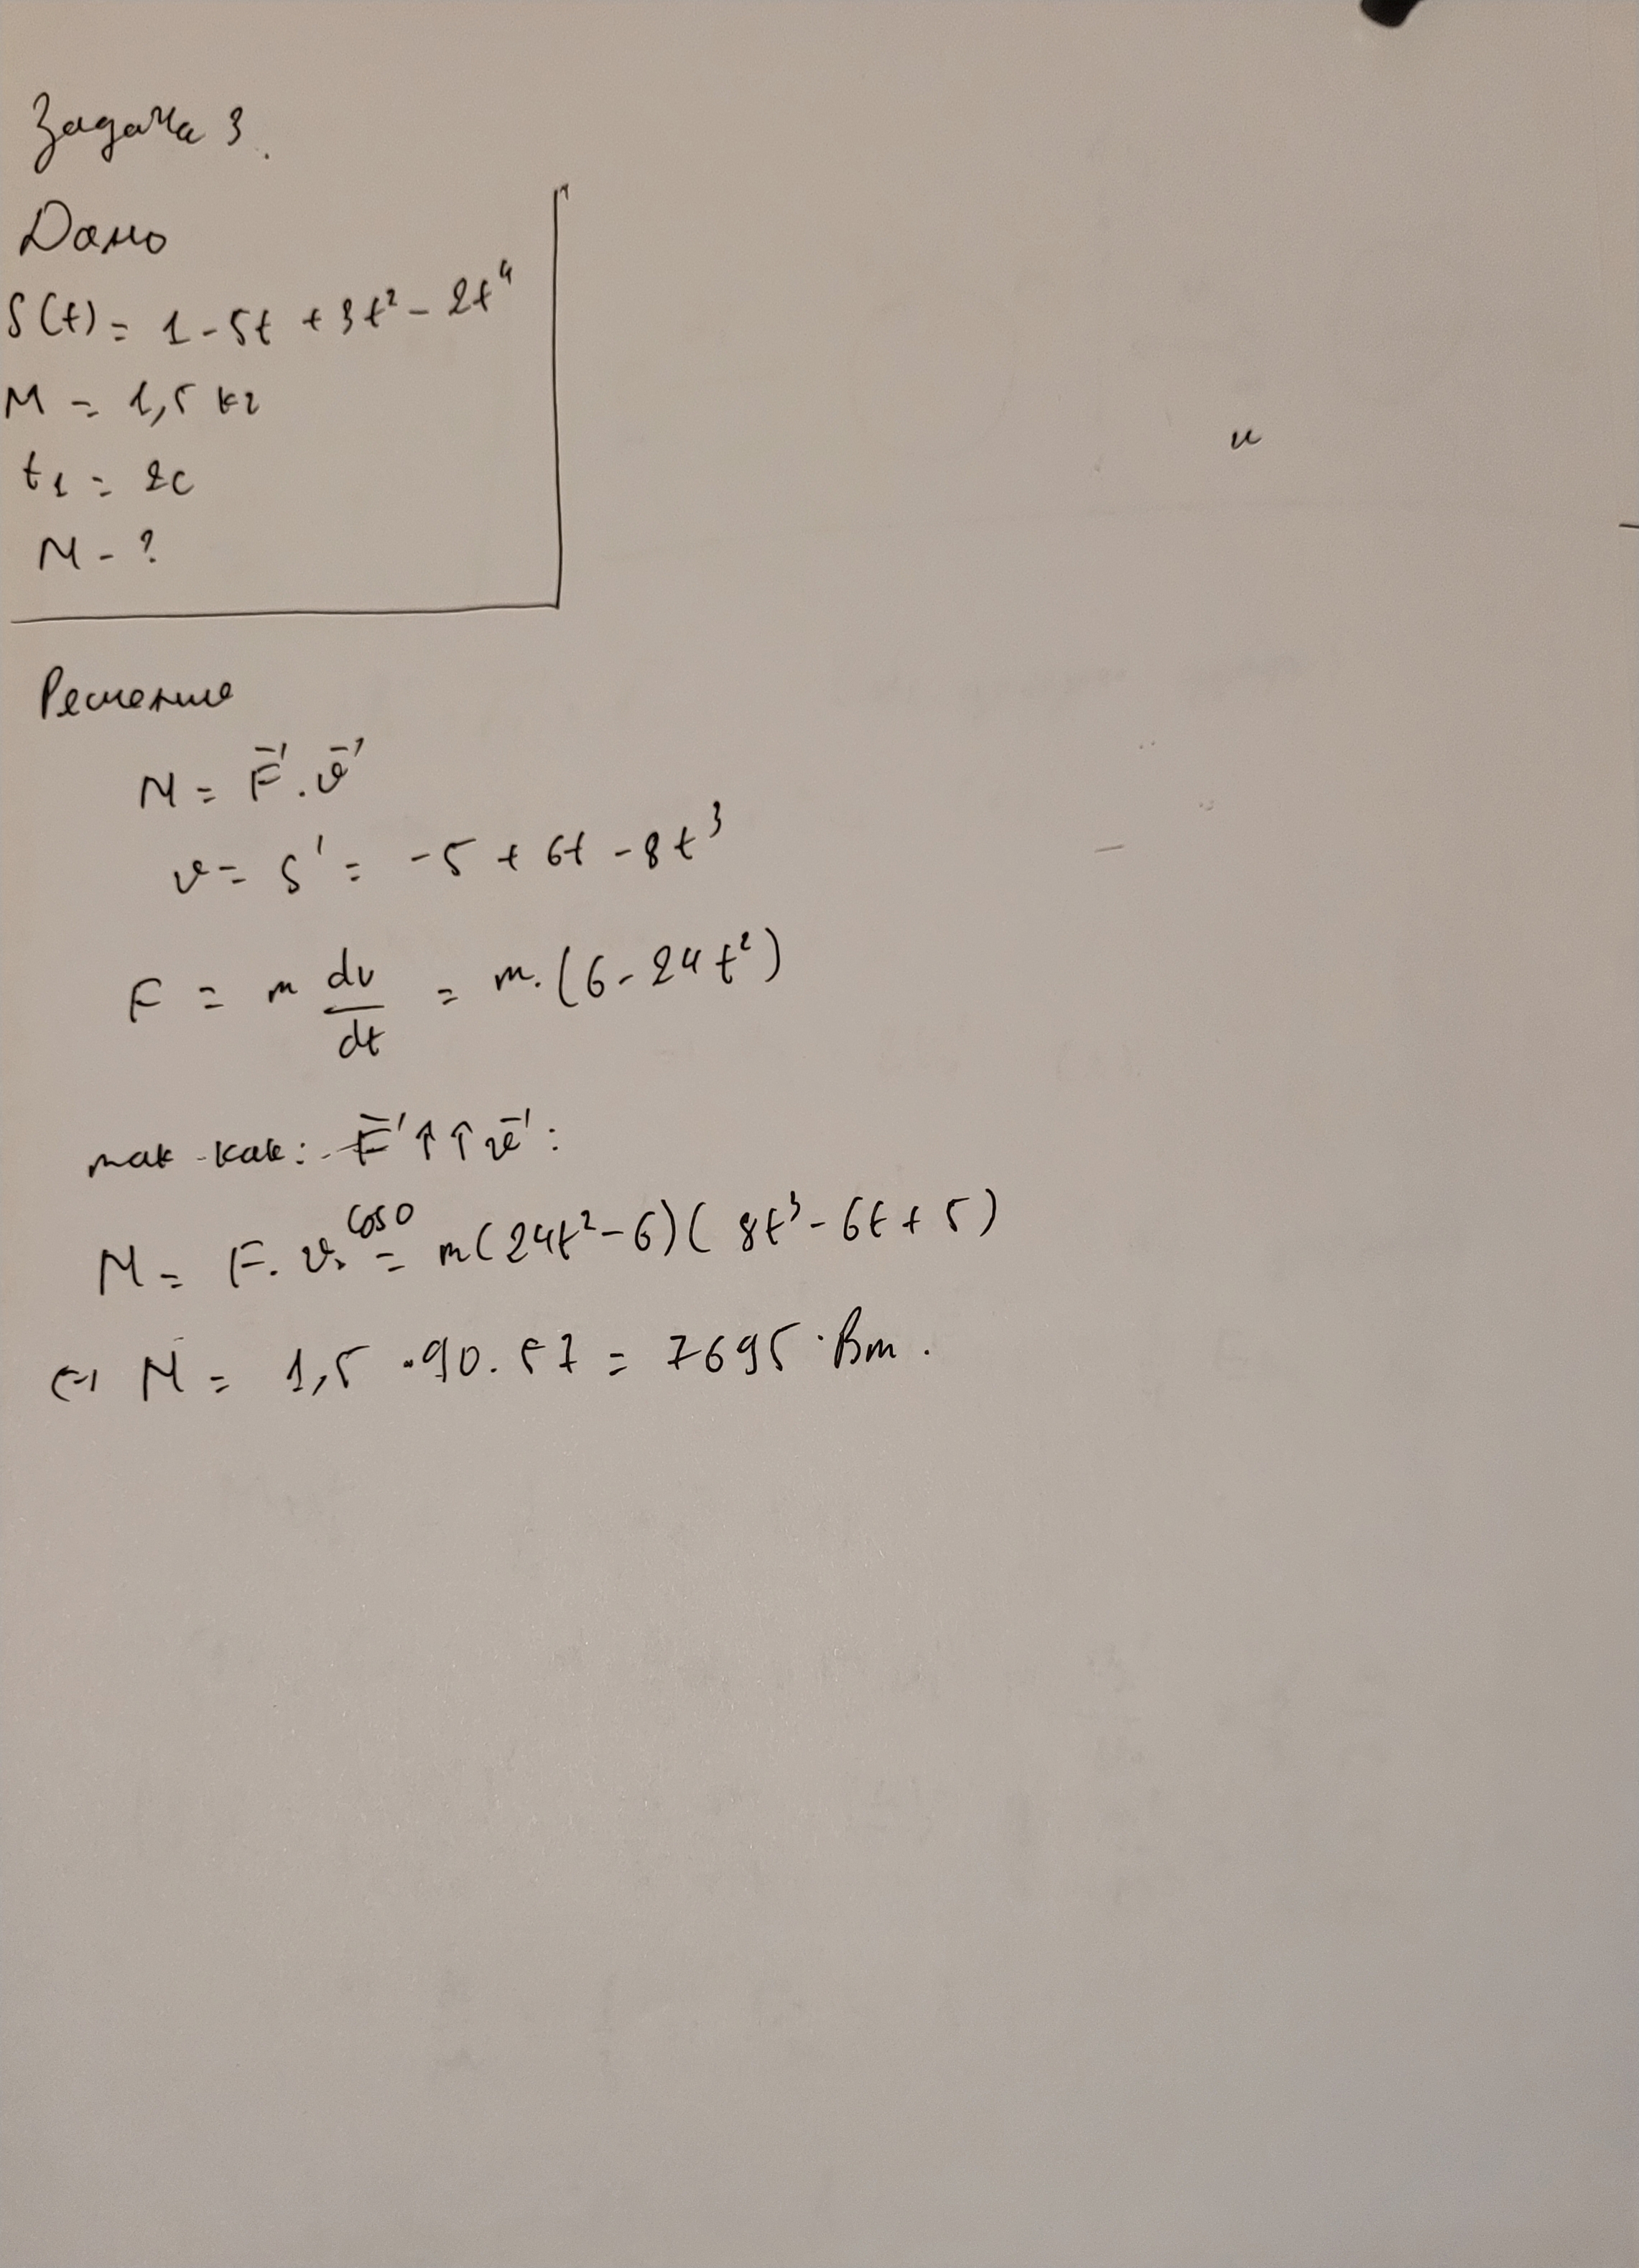 Задача 3.
Дано
S(t) = 1 - 5t + 3t² - 2t⁴
M = 1,5 кг
t₁ = 2c
N - ?
Решение
N = F⃗ · v⃗
v = S' = -5 + 6t - 8t³
F = m dv/dt = m · (6 - 24t²)
так как: F⃗ ↑↑ v⃗ :
N = F · v · cos0 = m(24t² - 6)(8t³ - 6t + 5)
N = 1,5 · 90 · 57 = 7695 Вт.
и